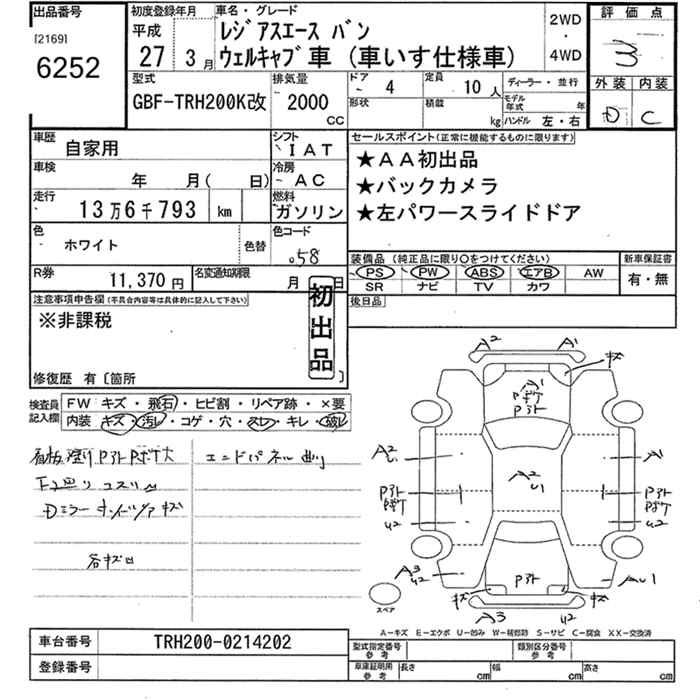 出品番号
[2169]
6252
初度登録年月
平成
27 3月
車名・グレード
レジアスエース バン
ウェルキャブ車 (車いす仕様車)
2WD
・
4WD
評価点
3
外装 内装
D C
型式
GBF-TRH200K改
排気量
2000
CC
ドア
4
定員
10人
形状
積載
kg
ディーラー・並行
モデル年式 年
ハンドル 左・右
車歴
自家用
シフト
IAT
車検
年 月( 日)
冷房
AC
走行
13万6千793 km
燃料
ガソリン
色
ホワイト
色替
色コード
058
R券
11,370円
名変通知期限
月 日
セールスポイント(正常に機能するものに限ります)
★AA初出品
★バックカメラ
★左パワースライドドア
装備品 (純正品に限り○をつけてください)
PS PW ABS エアB AW
SR ナビ TV カワ
新車保証書
有・無
後日品
注意事項申告欄(不具合内容等は具体的に記入して下さい)
※非課税
初出品
修復歴 有〔箇所 〕
検査員記入欄
FW キズ・飛石・ヒビ割・リペア跡・×要
内装 キズ・汚レ・コゲ・穴・スレ・キレ・破レ
エンドパネル曲り
下廻り コスリ
谷キズ凹
A2 A1 キズ
A1
Pボケ
Pアト
A2 A1
A2
U1
Pアト
Pボケ
Pアト
Pボケ
U2 U2
A3
U2
Pアト
AU1
キズ キズ
A3 U2
スペア
A-キズ E-エクボ U-凹み W-補修跡 S-サビ C-腐食 XX-交換済
車台番号
TRH200-0214202
登録番号
型式指定番号
参考
類別区分番号
参考
車庫証明用
参考
長さ cm
幅 cm
高さ cm